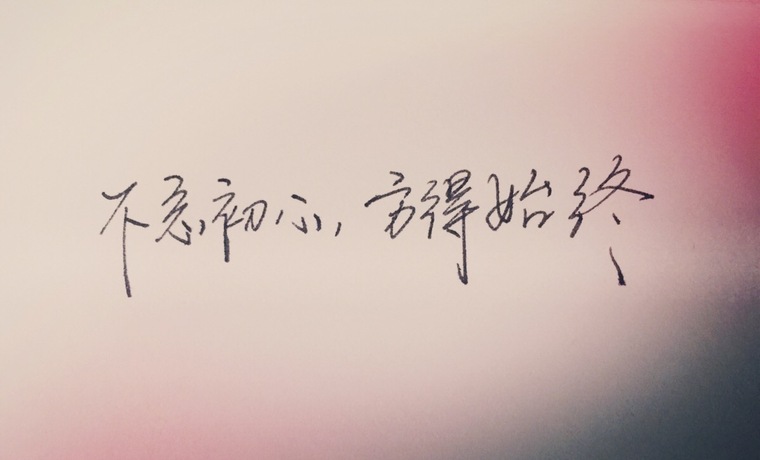 不忘初心，方得始终